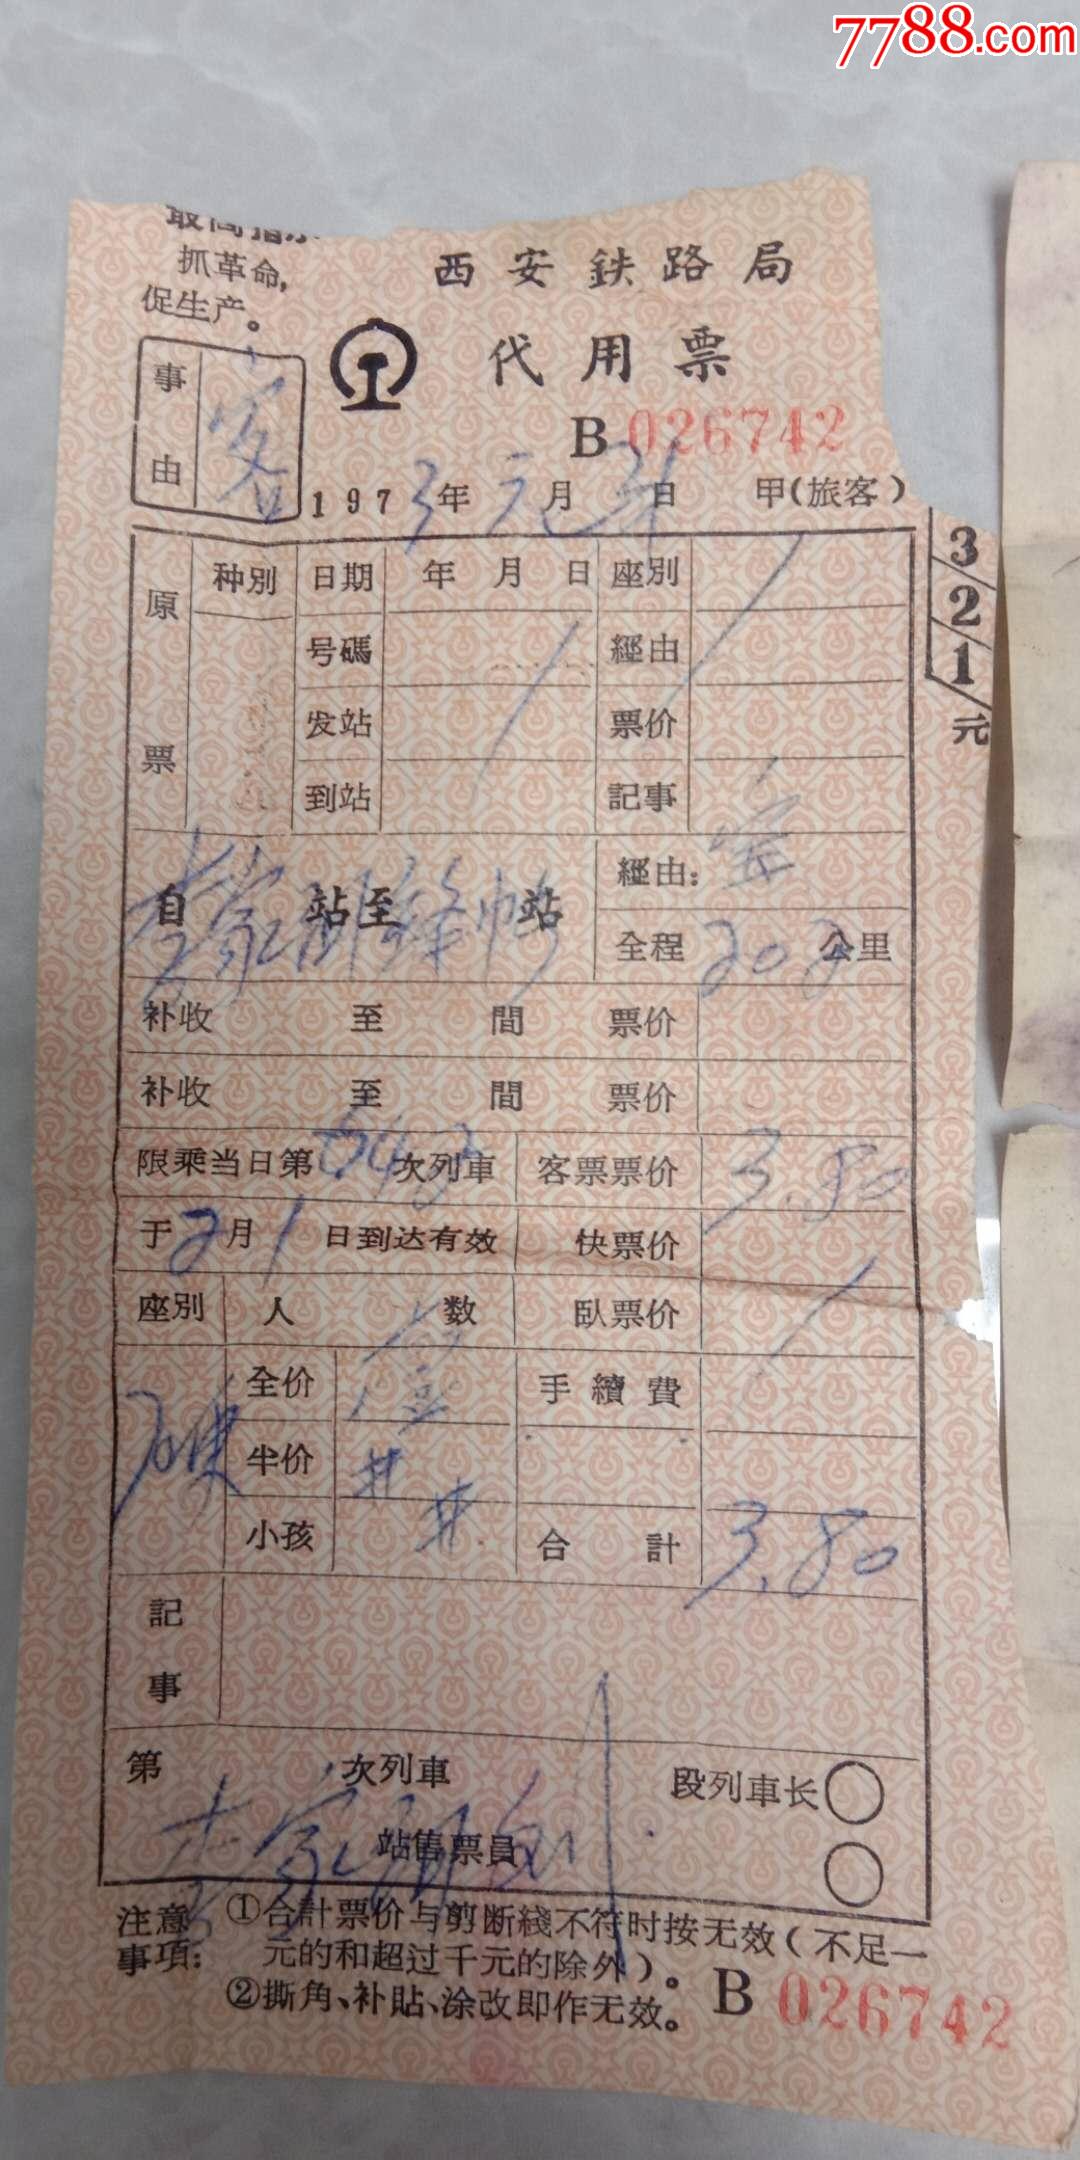 7788.com
抓革命,
促生产。
西安鉄路局
代用票
事由 客
B 026742
1973年元月 日 甲(旅客)
3
2
1
元
原票
种別 日期 年 月 日 座別
号碼 經由
发站 票价
到站 記事
自 站至 站
經由:
全程 202 公里
补收 至 間 票价
补收 至 間 票价
限乘当日第 次列車 客票票价 3.80
于2月1日到达有效 快票价
座別 人数 臥票价
硬 全价 壹 手續費
半价 #
小孩 # 合計 3.80
記事
第 次列車 段列車长
站售票員
注意事項:
①合計票价与剪断綫不符时按无效(不足一
元的和超过千元的除外)。
②撕角、补貼、涂改即作无效。
B 026742